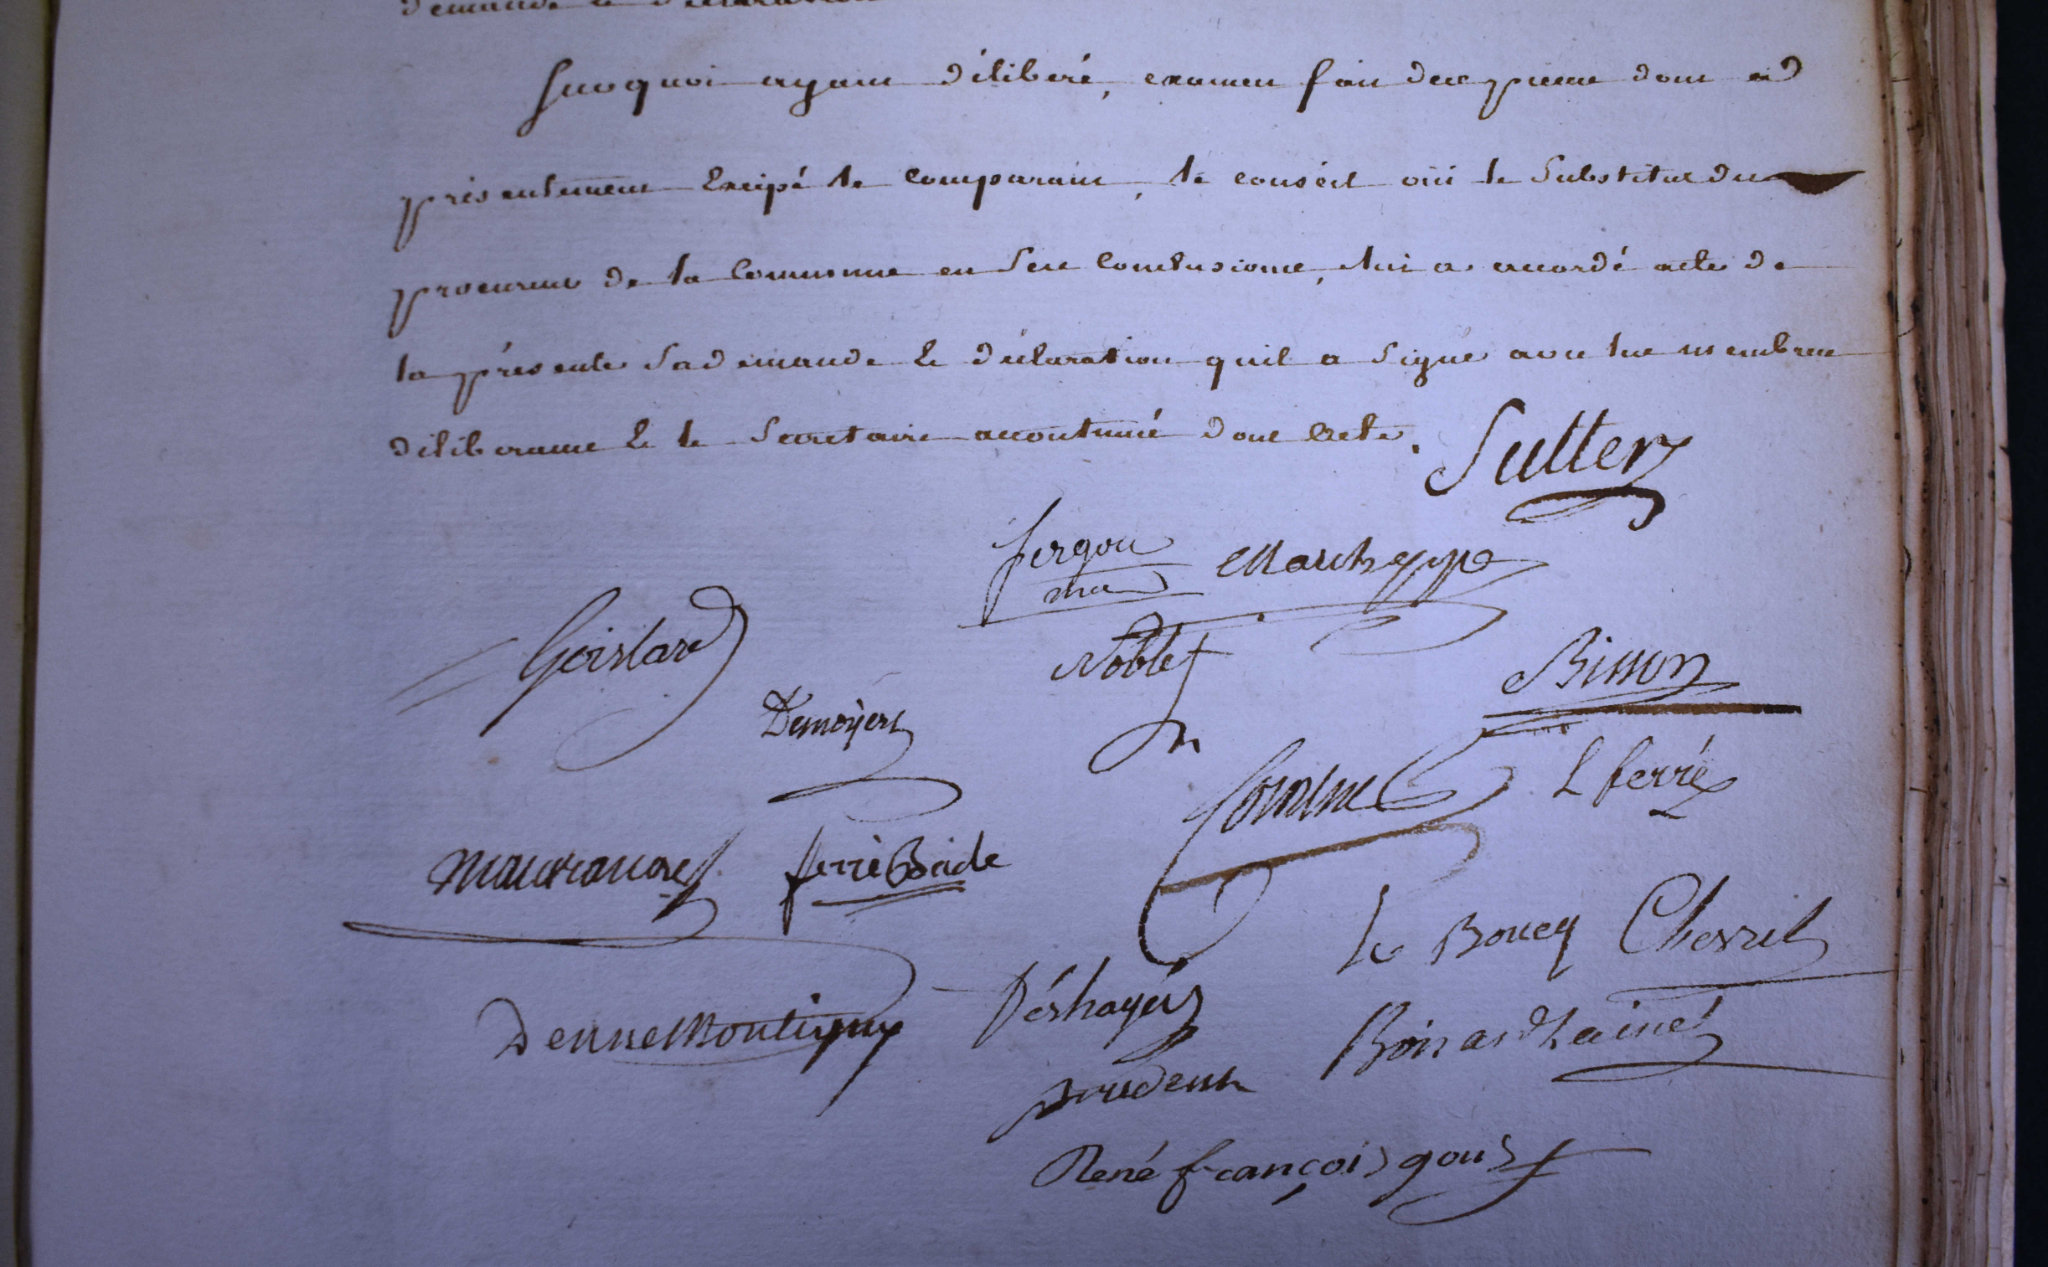 demande et déclaration
Surquoi ayant délibéré, examen fait des pieces dont a
présentement Excipé le comparant, le conseil oüi le Substitut du
procureur de la Commune en ses Conclusions, lui a accordé acte de
la présente Sa demande et déclaration qu'il a Signé avec les membres
déliberans et le Secretaire accoutumé dont Acte.
Sutter
fergon Marcheppe
Goislard Noblet Bisson
Demoÿers
L ferré
ferré Boide
Le Boucq Chevril
Denne Montigny Déshayés
Boisard Lainé
prudent
René françois gous